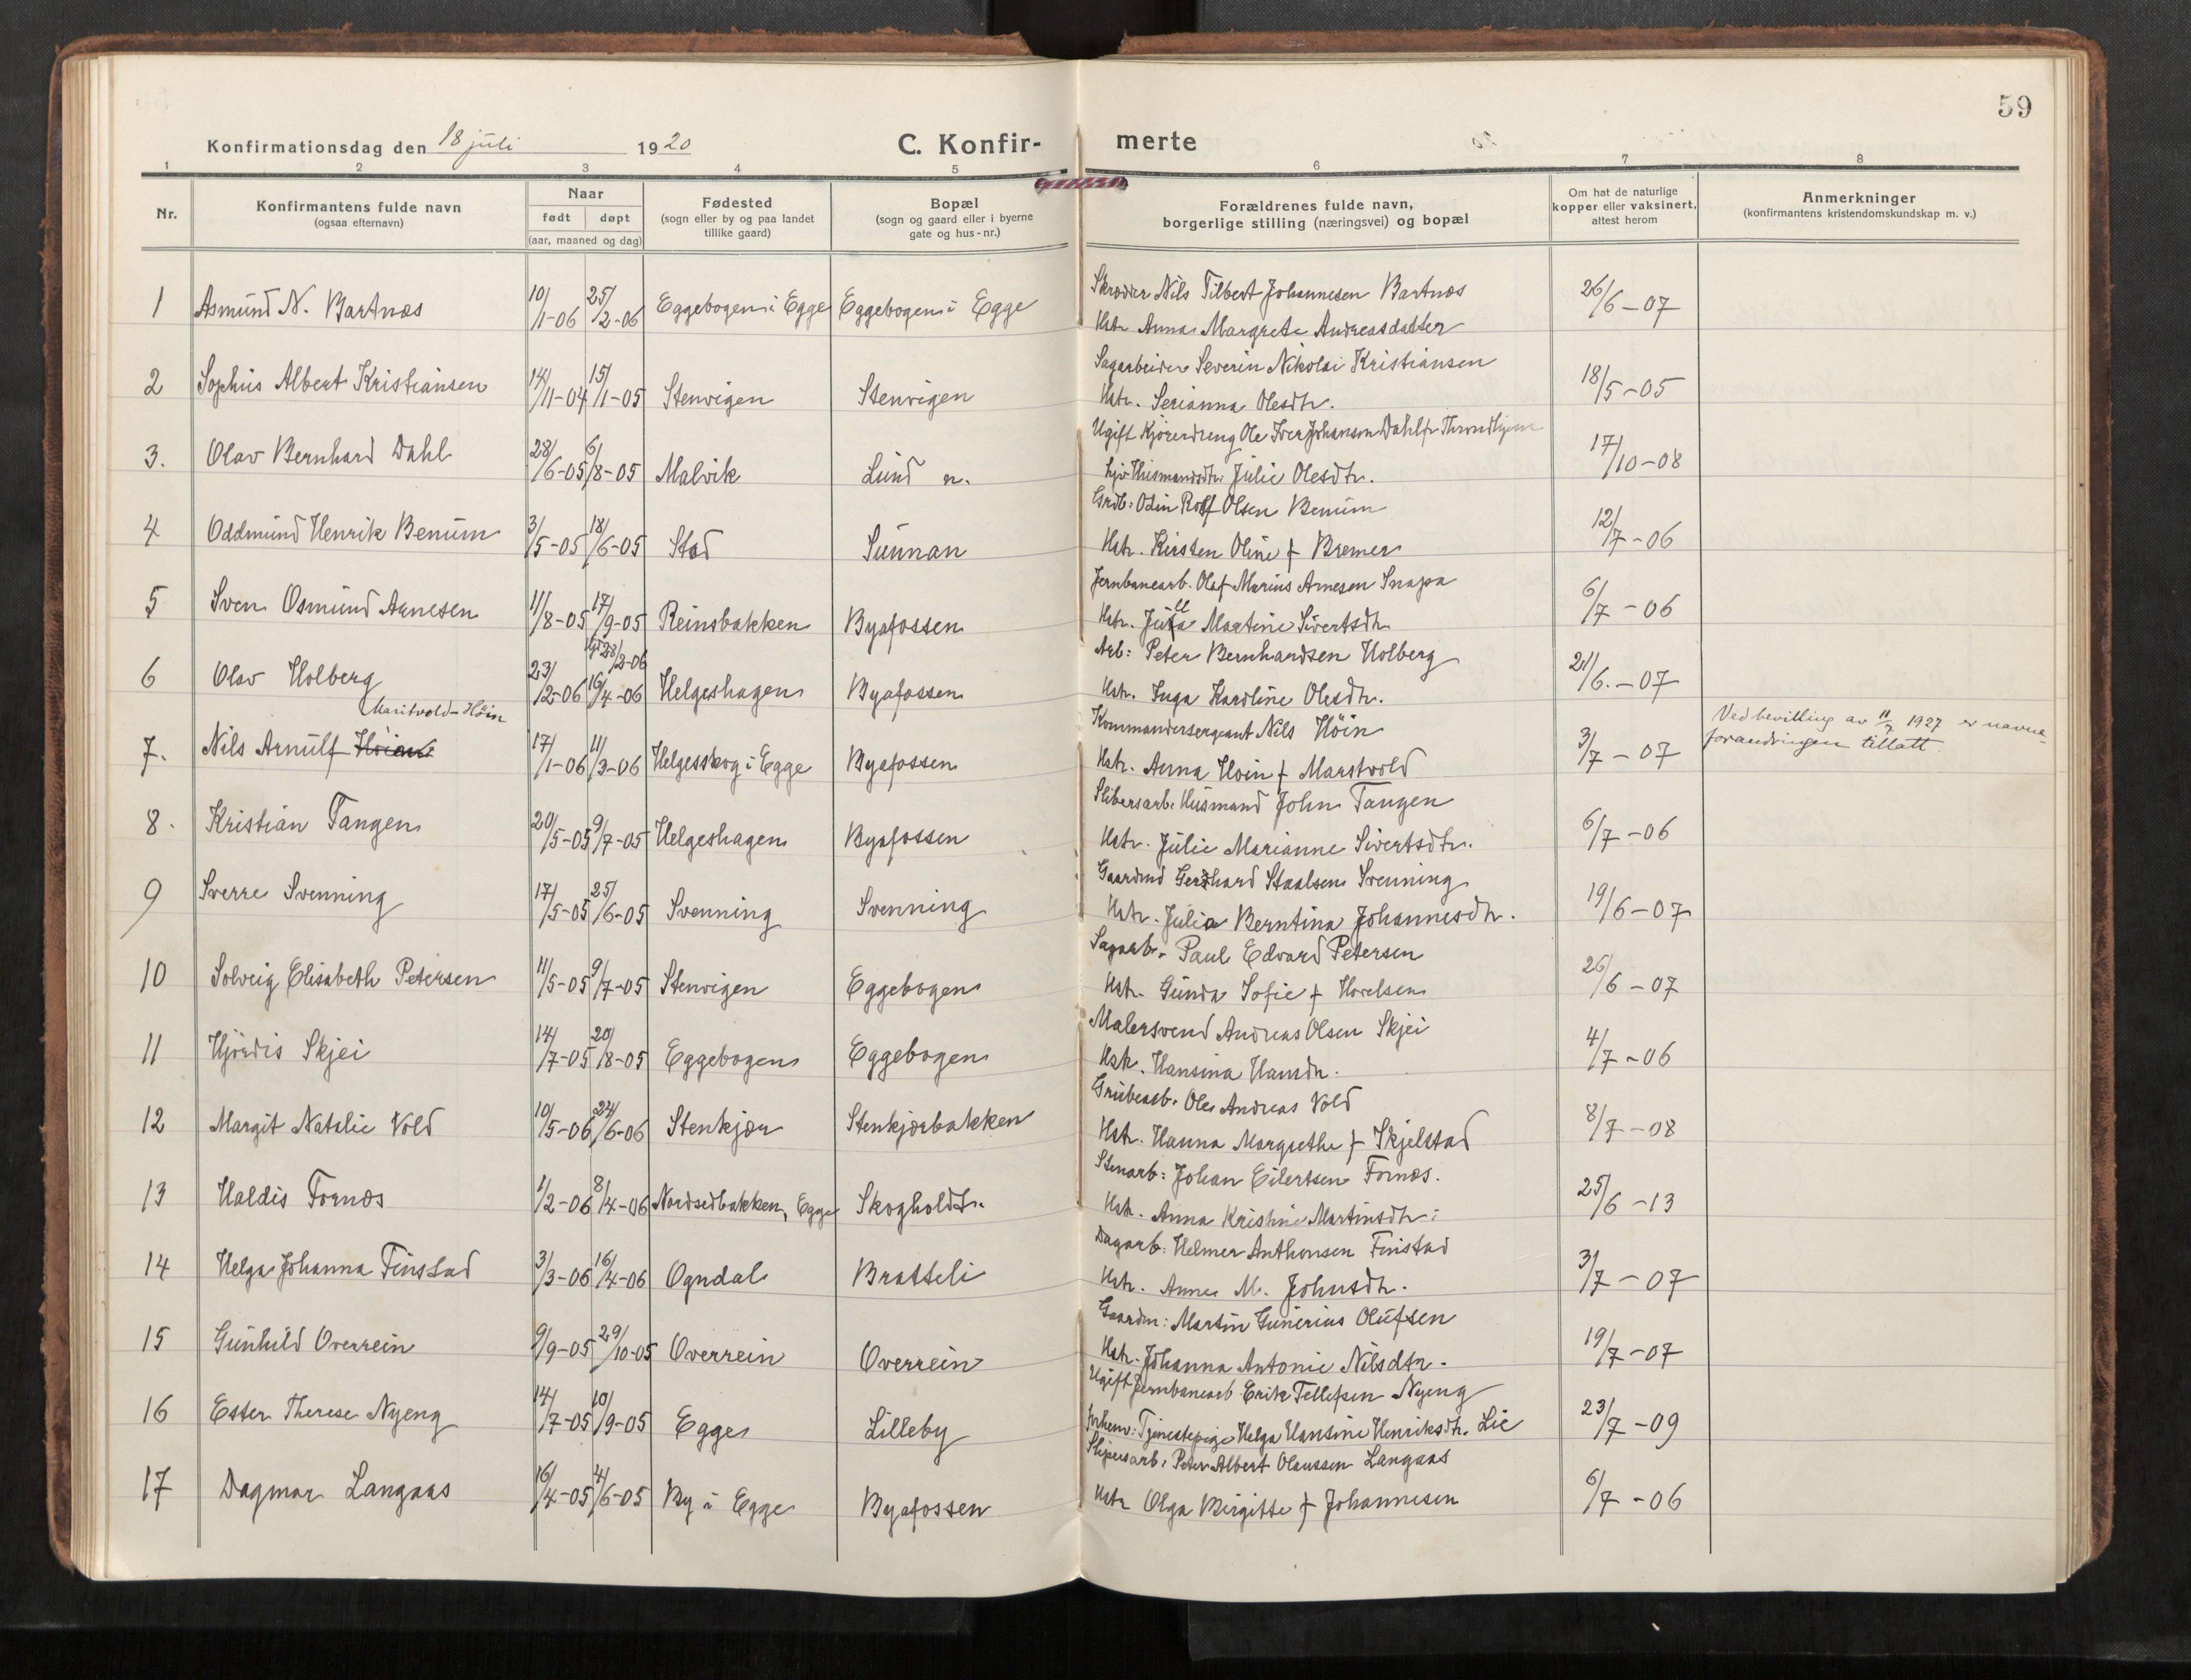 59
Konfirmationsdag den 18 juli 1920 C. Konfir- merte
1 2 3 4 5 6 7 8
Nr.
Konfirmantens fulde navn
(ogsaa efternavn)
Naar
født døpt
(aar, maaned og dag)
Fødested
(sogn eller by og paa landet
tillike gaard)
Bopæl
(sogn og gaard eller i byerne
gate og hus-nr.)
Forældrenes fulde navn,
borgerlige stilling (næringsvei) og bopæl
Om hat de naturlige
kopper eller vaksinert,
attest herom
Anmerkninger
(konfirmantens kristendomskundskap m. v.)
1 Asmund N. Bartnæs 10/1-06 25/2-06 Eggebogen i Egge Eggebogen i Egge Skrædder Nils Tilbert Johannesen Bartnæs 26/6-07
Hstr Anna Margrete Andreasdatter
2 Sophus Albert Kristiansen 14/11-04 15/1-05 Stenvigen Stenvigen Sagarbeider Severin Nikolai Kristiansen 18/5-05
Hstr. Serianna Olesdtr.
3. Olav Bernhard Dahl 28/6-05 6/8-05 Malvik Lund n. Ugift Kjøredreng Ole Iver Johansen Dahl fr Throndhjem 17/10-08
Husmandsdtr. Julie Olesdtr.
4 Oddmund Henrik Benum 3/5-05 18/6-05 Stod Sunnan Grdb: Odin Rolf Olsen Benum 12/7-06
Hstr. Kirsten Oline f Bremer
5 Sven Osmund Arnesen 11/8-05 17/9-05 Reinsbakken Byafossen Jernbanearb. Olaf Marius Arnesen Snaasa 6/7-06
Hstr. Julla Martine Sivertsdtr
6 Olav Holberg 23/2-06 28/2-06 16/4-06 Helgeshagen Byafossen Arb: Peter Bernhardsen Holberg 21/6.-07
Hstr. Inga Karoline Olesdtr.
Maritvold-Höin
7. Nils Arnulf Höian 17/1-06 11/3-06 Helgesskog i Egge Byafossen Kommandersergeant Nils Höin 3/7-07 Ved bevilling av 11/7 1927 er navne-
forandringen tillatt.
Hstr. Anna Hoin f Marstvold
8. Kristian Tangen 20/5-05 9/7-05 Helgeshagen Byafossen Slibersarb. Husmand John Tangen 6/7-06
Hstr. Julie Marianne Sivertsdtr.
9 Sverre Svenning 17/5-05 25/6-05 Svenning Svenning Gaardmd Gerhard Staalsen Svenning 19/6-07
Hstr. Julia Berntina Johannesdtr.
10 Solveig Elisabeth Petersen 11/5-05 9/7-05 Stenvigen Eggebogen Sagarb. Paul Edvard Petersen 26/6-07
Hstr. Gunda Sofie f Hovelsen
11 Hjördis Skjei 14/7-05 20/8-05 Eggebogen Eggebogen Malersvend Andreas Olsen Skjei 4/7-06
Hstr. Hansina Hansdtr.
12 Margit Natalie Vold 10/5-06 24/6-06 Stenkjær Stenkjærbakken Grubearb. Ole Andreas Vold 8/7-08
Hstr. Hanna Margrethe f Skjelstad
13 Haldis Fornæs 1/2-06 8/4-06 Nordsedbakken, Egge Skogholdt. Stenarb: Johan Eilertsen Fornæs. 25/6-13
Hstr. Anna Kristine Martinsdtr:
14 Helga Johanna Finstad 3/3-06 16/4-06 Ogndal Bratteli Dagarb: Helmer Anthonsen Finstad 3/7-07
Hstr. Anne M. Johnsdtr.
15 Gunhild Overrein 9/9-05 29/10-05 Overrein Overrein Gaardm: Martin Gunerius Olufsen 19/7-07
Hstr. Johanna Antonie Nilsdtr.
16 Ester Therese Nyeng 14/7-05 10/9-05 Egge Lilleby Ugift Jernbanearb Erik Tellefsen Nyeng 23/7-09
forhenv: Tjenestepige Helga Hansine Henriksdtr. Lie
17 Dagmar Langaas 16/4-05 4/6-05 By i Egge Byafossen Slipersarb: Peter Albert Olaussen Langaas 6/7-06
Hstr Olga Birgitte f Johannesen